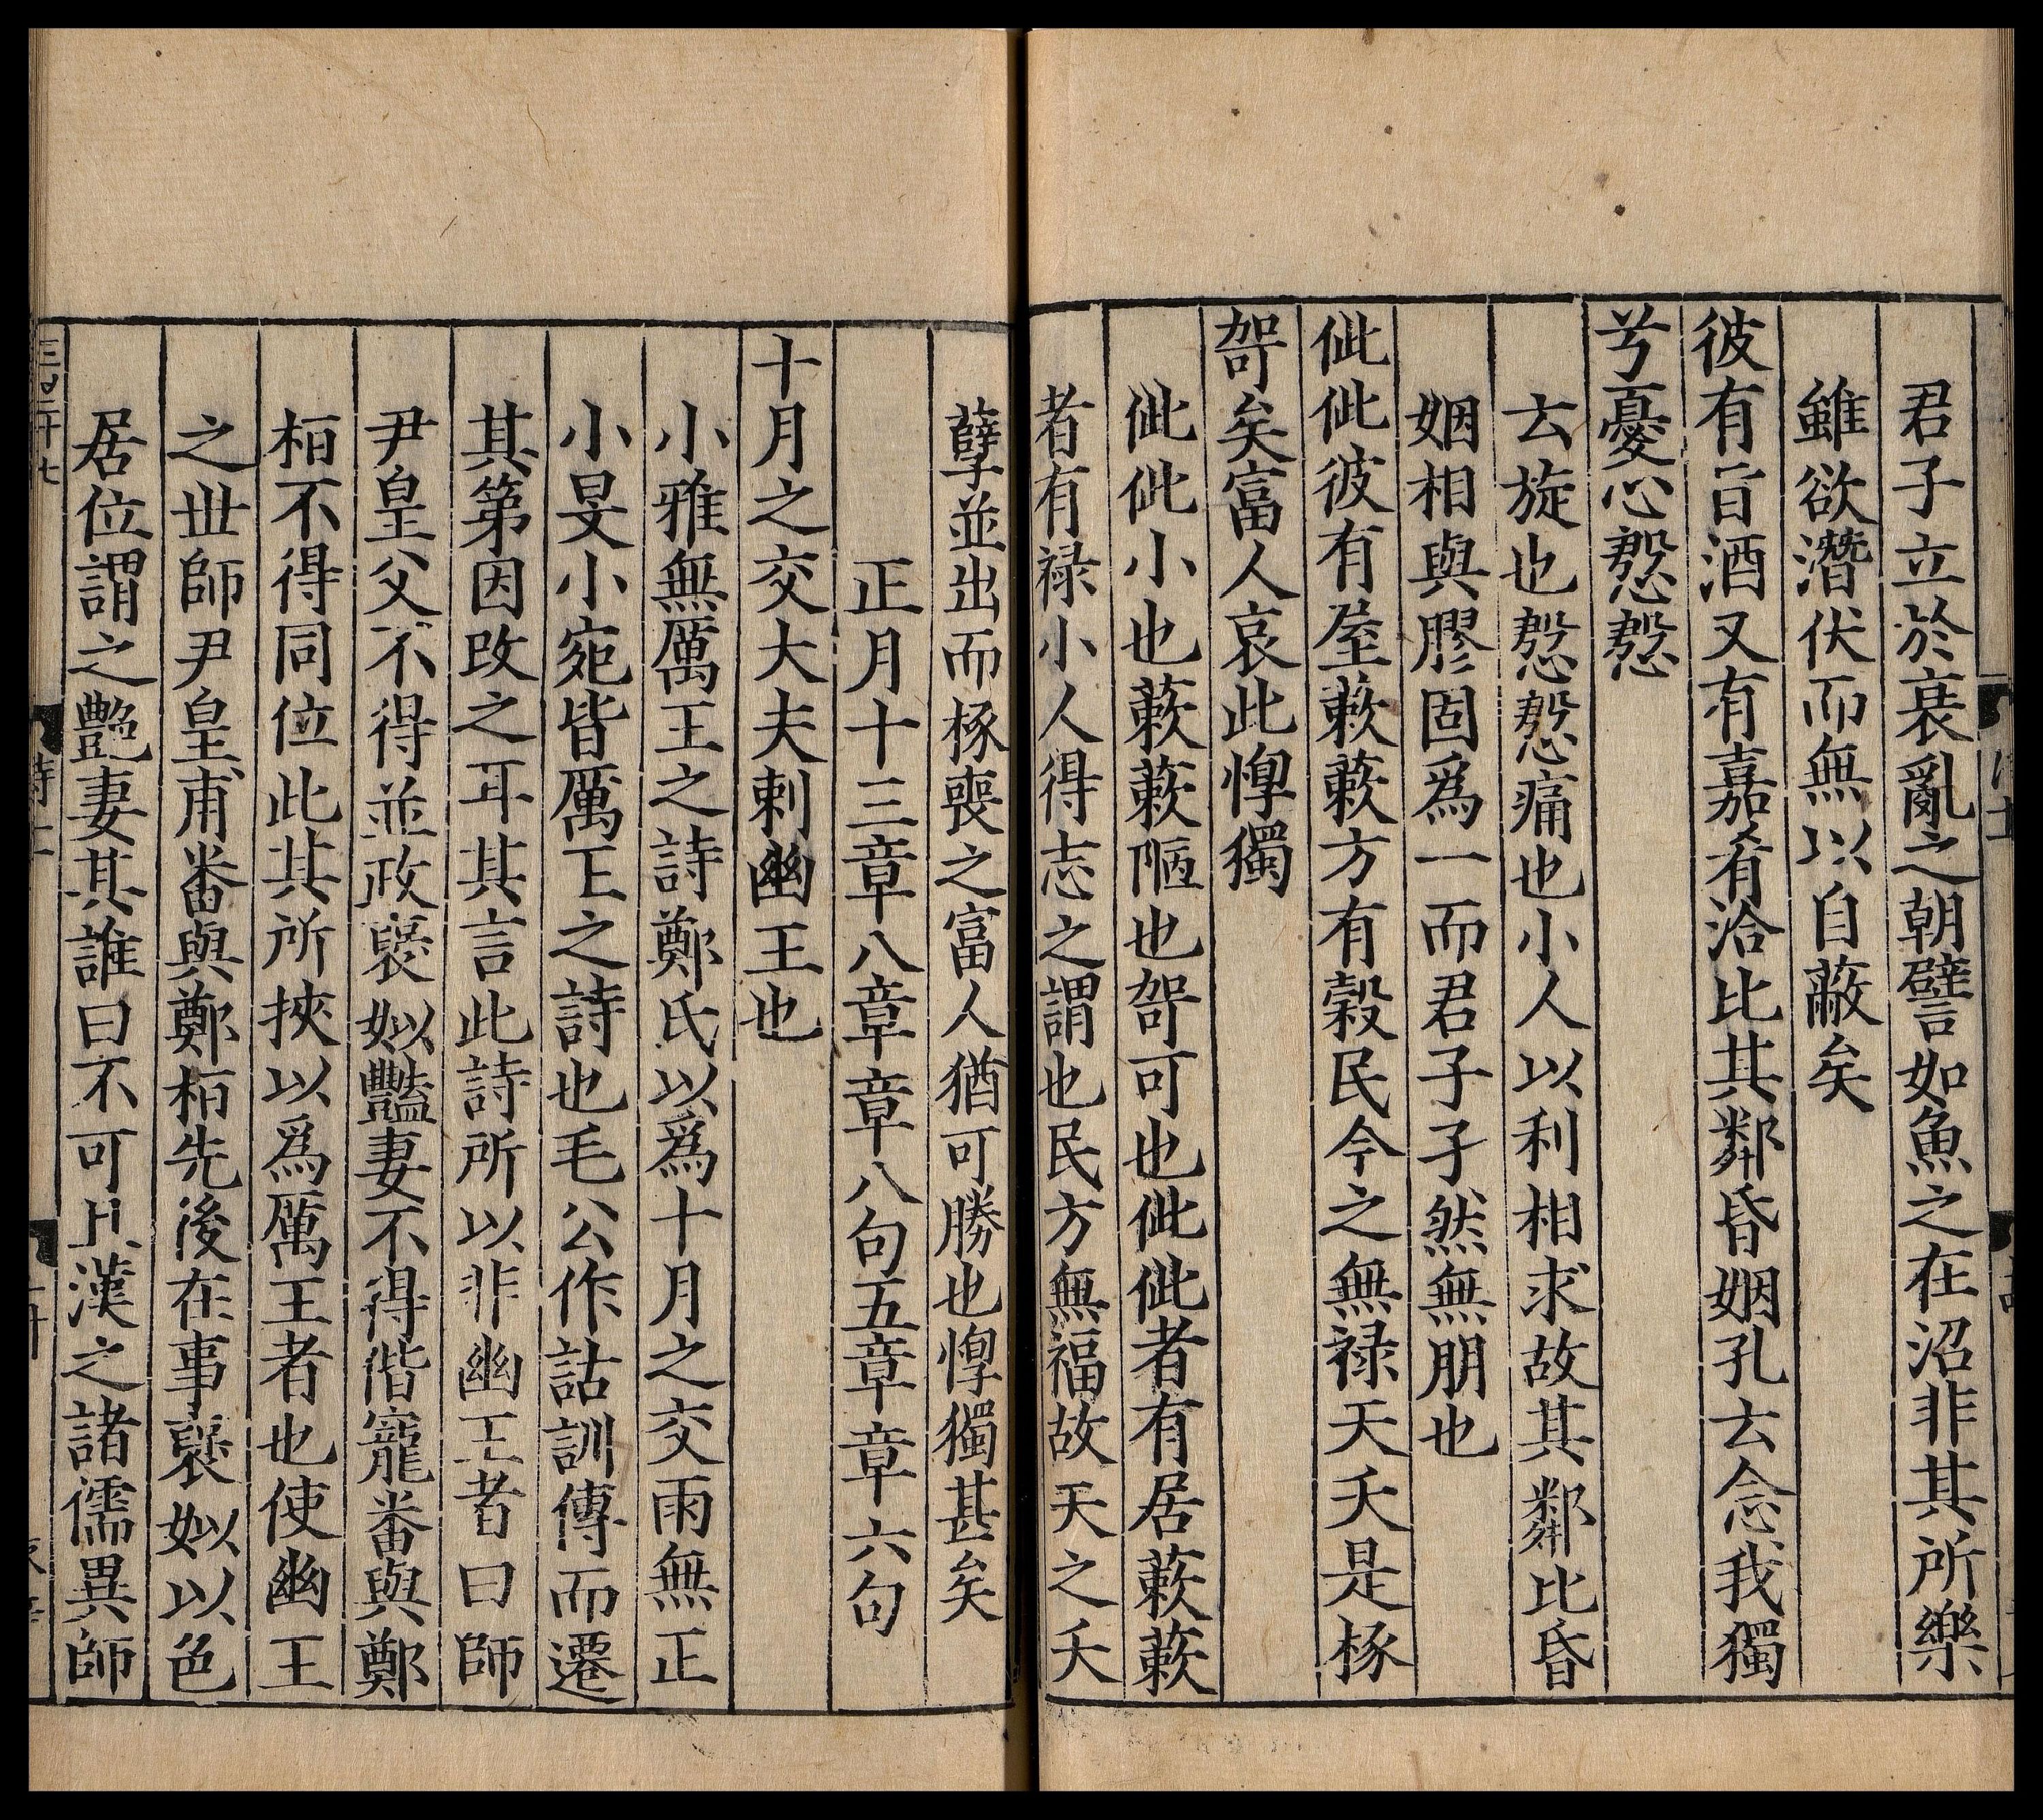 君子立於衰亂之朝譬如魚之在沼非其所樂
雖欲潛伏而無以自蔽矣
彼有旨酒又有嘉肴洽比其鄰昏姻孔云念我獨
兮憂心慇慇
云旋也慇慇痛也小人以利相求故其鄰比昏
姻相與膠固爲一而君子孑然無朋也
佌佌彼有屋蔌蔌方有穀民今之無禄天夭是椓
哿矣富人哀此惸獨
佌佌小也蔌蔌陋也哿可也佌佌者有居蔌蔌
者有禄小人得志之謂也民方無福故天之夭
孽並出而椓喪之富人猶可勝也惸獨甚矣
正月十三章八章章八句五章章六句
十月之交大夫刺幽王也
小雅無厲王之詩鄭氏以爲十月之交雨無正
小旻小宛皆厲王之詩也毛公作詁訓傳而遷
其第因改之耳其言此詩所以非幽王者曰師
尹皇父不得並政褒姒豔妻不得偕寵番與鄭
栢不得同位此其所挾以爲厲王者也使幽王
之世師尹皇甫番與鄭栢先後在事褒姒以色
居位謂之艷妻其誰曰不可且漢之諸儒異師